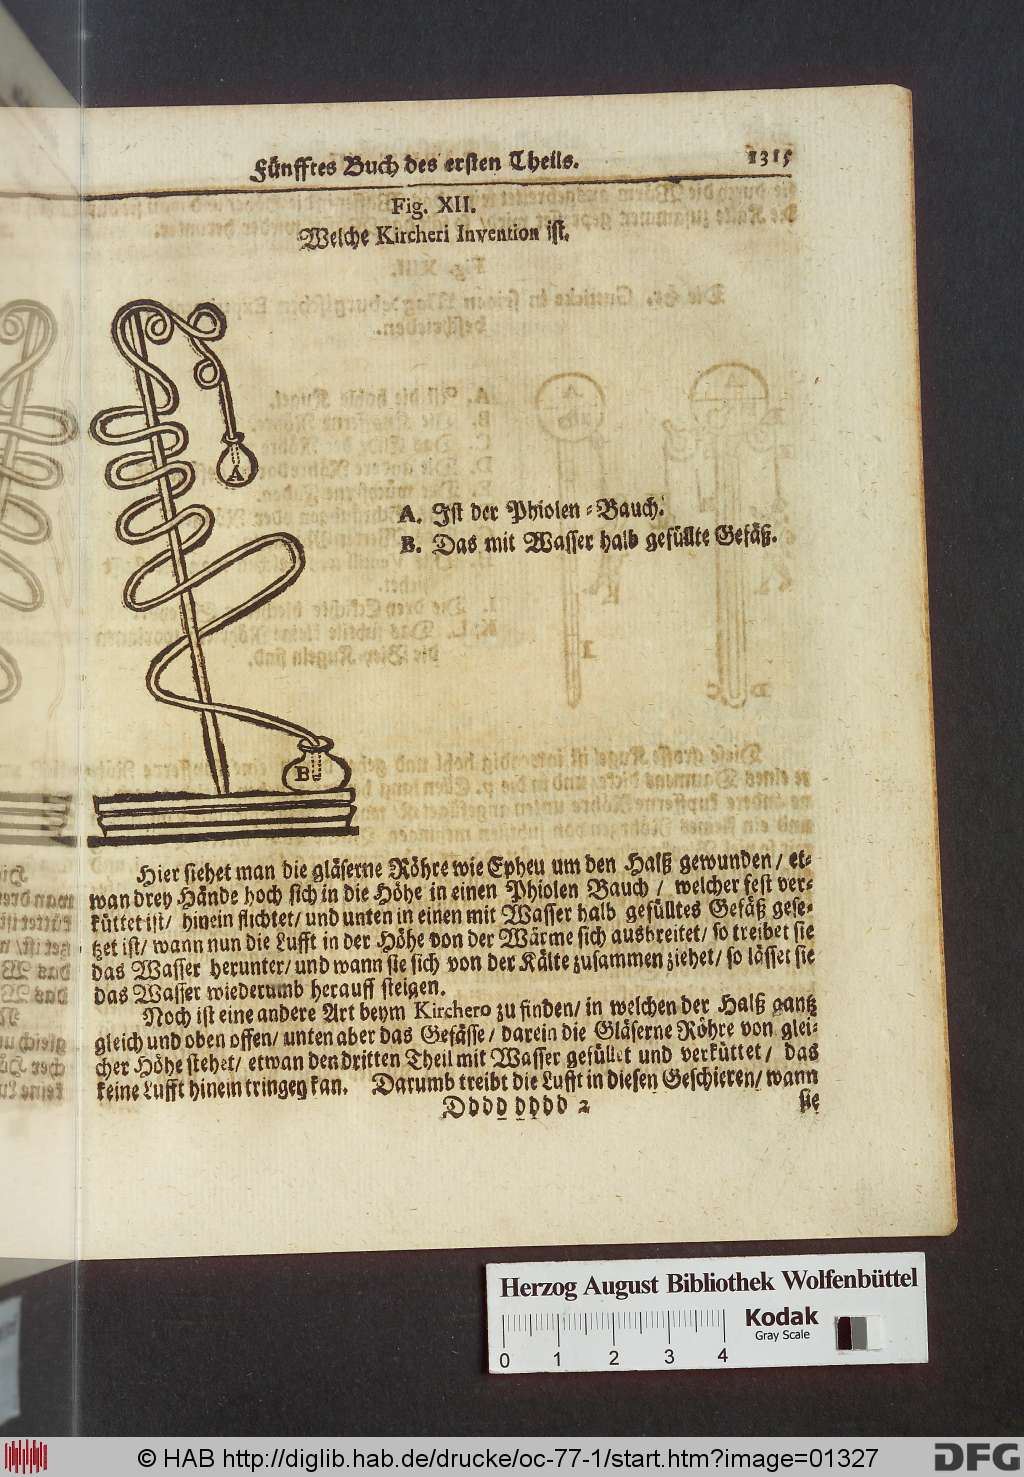 Fünfftes Buch des ersten Theils. 1315
Fig. XII.
Welche Kircheri Invention ist.
A
A. Ist der Phiolen-Bauch.
B. Das mit Wasser halb gefüllte Gefäß.
B
Hier siehet man die gläserne Röhre wie Epheu um den Halß gewunden / et-
wan drey Hände hoch sich in die Höhe in einen Phiolen Bauch / welcher fest ver-
küttet ist / hinein flichtet / und unten in einen mit Wasser halb gefülltes Gefäß gese-
tzet ist / wann nun die Lufft in der Höhe von der Wärme sich ausbreitet / so treibet sie
das Wasser herunter / und wann sie sich von der Kälte zusammen ziehet / so lässet sie
das Wasser wiederumb herauff steigen.
Noch ist eine andere Art beym Kirchero zu finden / in welchen der Halß gantz
gleich und oben offen / unten aber das Gefässe / darein die Gläserne Röhre von glei-
cher Höhe stehet / etwan den dritten Theil mit Wasser gefüllet und verküttet / das
keine Lufft hinein tringen kan. Darumb treibt die Lufft in diesen Geschieren / wann
Dddd dddd 2 sie
Herzog August Bibliothek Wolfenbüttel
Kodak
Gray Scale
0 1 2 3 4
© HAB http://diglib.hab.de/drucke/oc-77-1/start.htm?image=01327
DFG